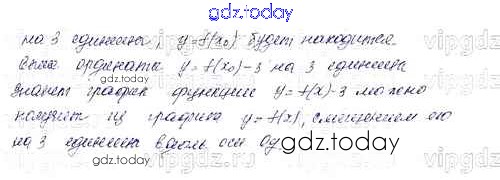 gdz.today
на 3 единицы, y=f(x₀) будет находится
выше ордината y=f(x₀)-3 на 3 единицы
значит график функции y=f(x)-3 можно
получит из графика y=f(x), смещением его
на 3 единицы вдоль оси Oy.
gdz.today
gdz.today
gdz.today
vipgdz
vipgdz
vipgdz